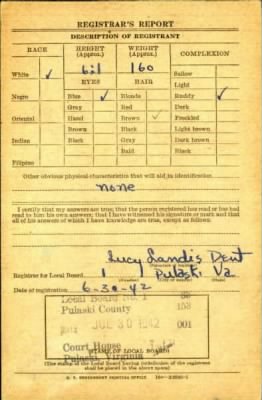 REGISTRAR'S REPORT
DESCRIPTION OF REGISTRANT
RACE HEIGHT (Approx.) WEIGHT (Approx.) COMPLEXION
White ✓ 160 Sallow
EYES HAIR Light
Negro Blue ✓ Blonde Ruddy ✓
Gray Red Dark
Oriental Hazel Brown ✓ Freckled
Brown Black Light brown
Indian Black Gray Dark brown
Bald Black
Filipino
Other obvious physical characteristics that will aid in identification
none
I certify that my answers are true; that the person registered has read or has had
read to him his own answers; that I have witnessed his signature or mark and that
all of his answers of which I have knowledge are true, except as follows:
Lucy Landis Dent
Registrar for Local Board 1 Pulaski Va
Date of registration 6-30-42
Local Board No. 1 88
Pulaski County 153
JUN 30 1942 001
Court House
Pulaski, Virginia
STAMP OF LOCAL BOARD
(The stamp of the Local Board having jurisdiction of the registrant
shall be placed in the above space)
U. S. GOVERNMENT PRINTING OFFICE